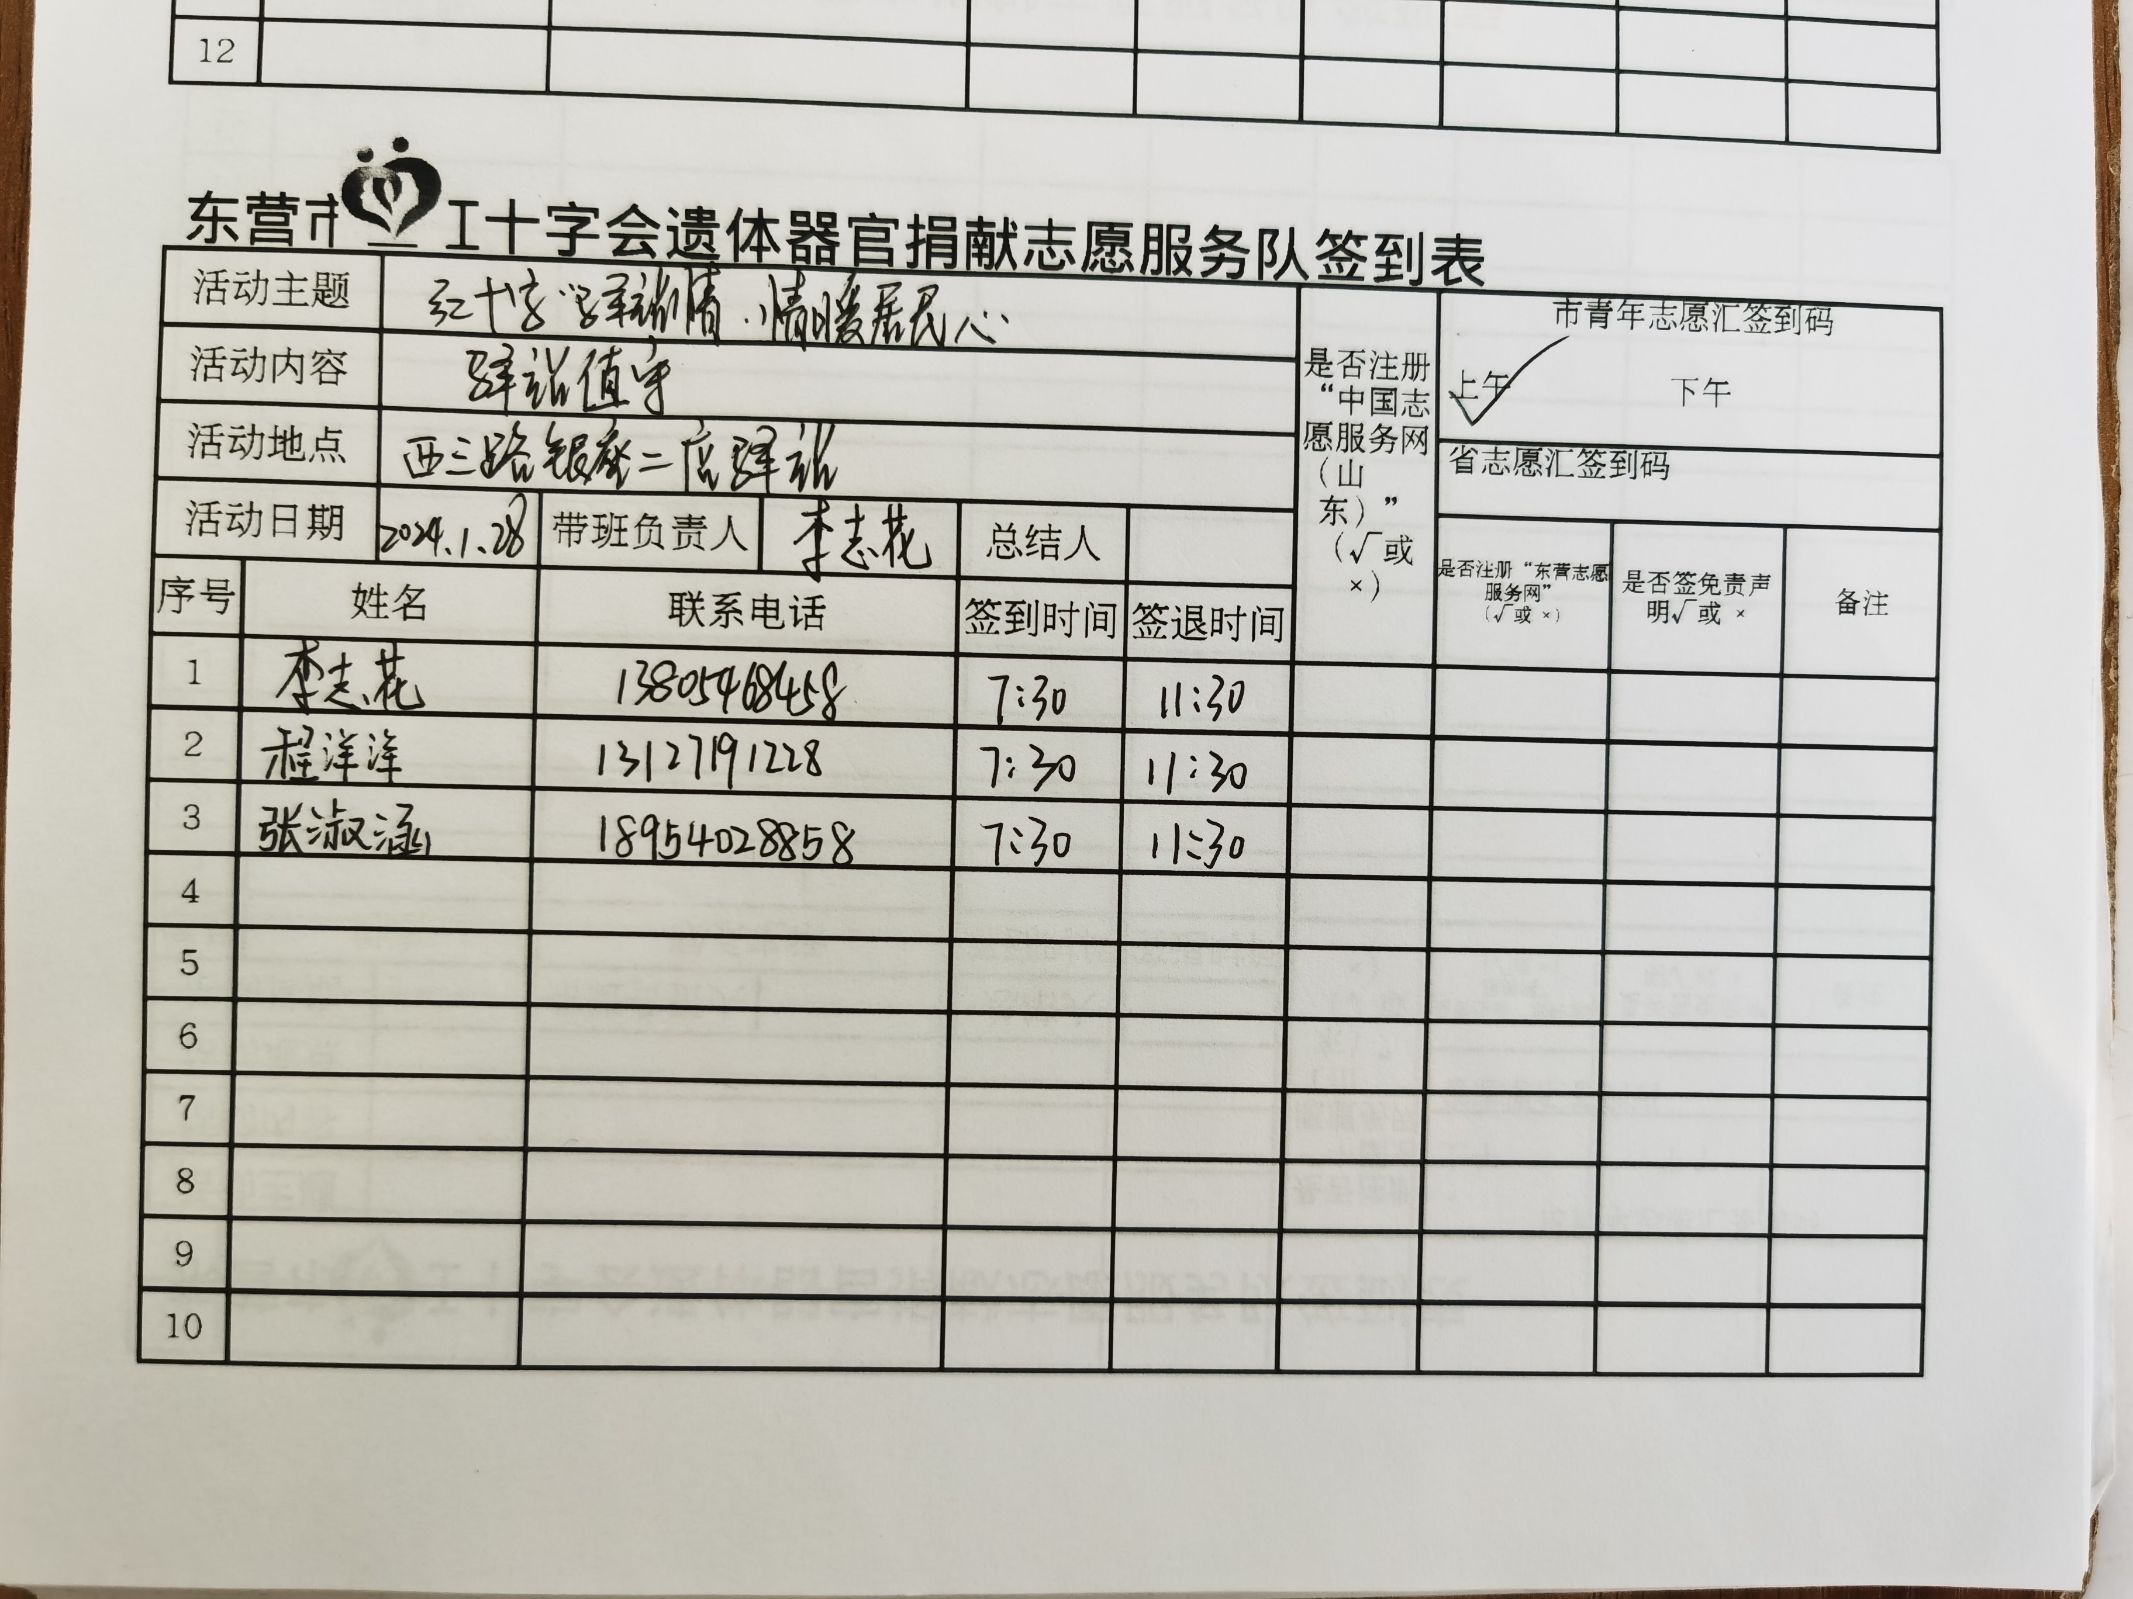 12
东营市 红十字会遗体器官捐献志愿服务队签到表
活动主题 红十字“驿站情·情暖居民心
活动内容 驿站值守
活动地点 西三路银座二店驿站
活动日期 2024.1.28 带班负责人 李志花 总结人
是否注册
“中国志
愿服务网
（山
东）”
（√或
×）
市青年志愿汇签到码
上午 下午
省志愿汇签到码
是否注册“东营志愿
服务网”
（√或 ×）
是否签免责声
明√或 ×
备注
序号 姓名 联系电话 签到时间 签退时间
1 李志花 13805468458 7:30 11:30
2 程洋洋 13127191228 7:30 11:30
3 张淑涵 18954028858 7:30 11:30
4
5
6
7
8
9
10